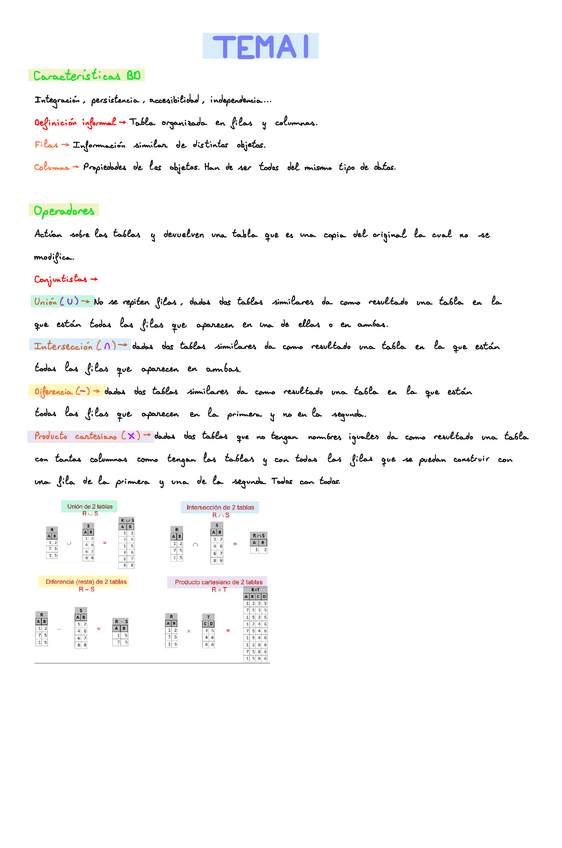 TEMA 1
Características BD
Integración, persistencia, accesibilidad, independencia...
Definición informal → Tabla organizada en filas y columnas.
Filas → Información similar de distintos objetos.
Columna → Propiedades de los objetos. Han de ser todos del mismo tipo de datos.
Operadores
Actúan sobre las tablas y devuelven una tabla que es una copia del original la cual no se
modifica.
Conjuntistas →
Unión (∪) → No se repiten filas, dadas dos tablas similares da como resultado una tabla en la
que están todas las filas que aparecen en una de ellas o en ambas.
Intersección (∩) → dadas dos tablas similares da como resultado una tabla en la que están
todas las filas que aparecen en ambas.
Diferencia (-) → dadas dos tablas similares da como resultado una tabla en la que están
todas las filas que aparecen en la primera y no en la segunda.
Producto cartesiano (×) → dadas dos tablas que no tengan nombres iguales da como resultado una tabla
con tantas columnas como tengan las tablas y con todas las filas que se puedan construir con
una fila de la primera y una de la segunda. Todos con todos.
Unión de 2 tablas
R ∪ S
Intersección de 2 tablas
R ∩ S
Diferencia (resta) de 2 tablas
R – S
Producto cartesiano de 2 tablas
R × T